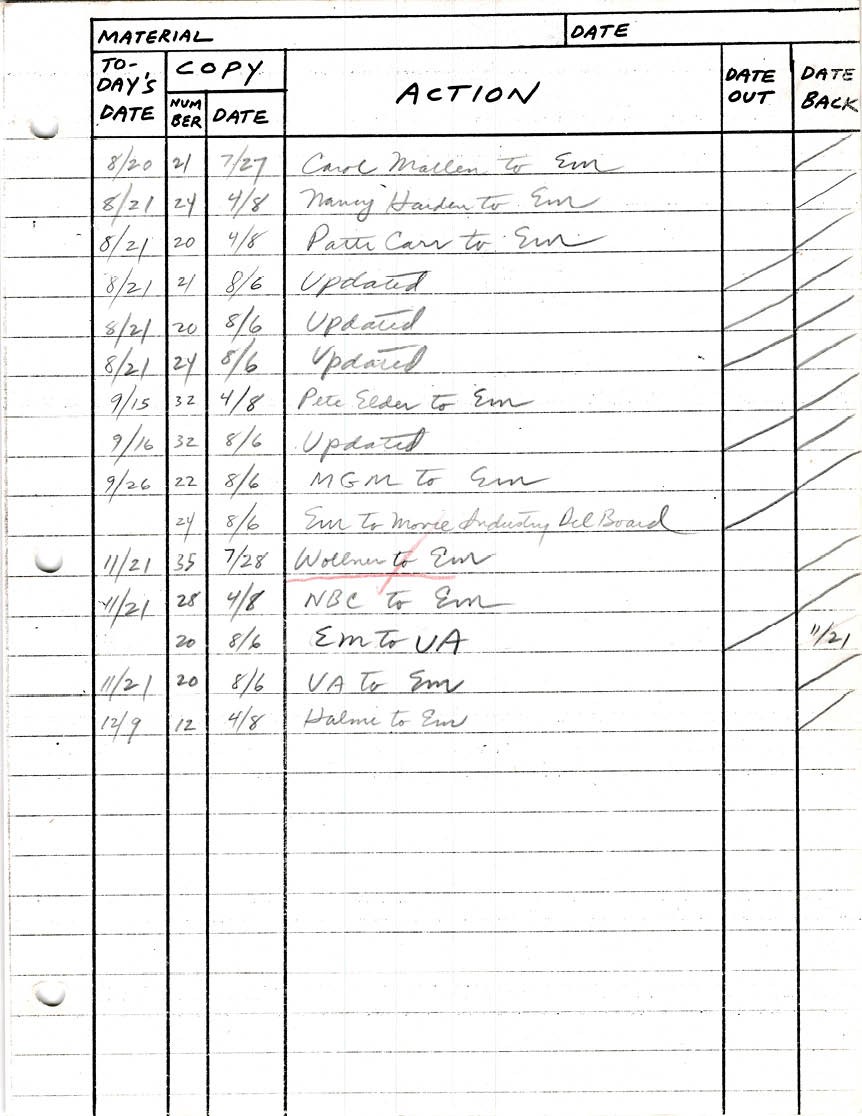 MATERIAL DATE
TO-DAY'S DATE COPY NUMBER DATE ACTION DATE OUT DATE BACK
8/20 21 7/27 Carol Mallen to Em
8/21 24 4/8 Nancy Harden to Em
8/21 20 4/8 Patti Carr to Em
8/21 21 8/6 Updated
8/21 20 8/6 Updated
8/21 24 8/6 Updated
9/15 32 4/8 Pete Elder to Em
9/16 32 8/6 Updated
9/26 22 8/6 MGM to Em
24 8/6 Em to Movie Industry Del Board
11/21 35 7/28 Wollner to Em
11/21 28 4/8 NBC to Em
20 8/6 Em to UA 11/21
11/21 20 8/6 UA to Em
12/9 12 4/8 Halmi to Em